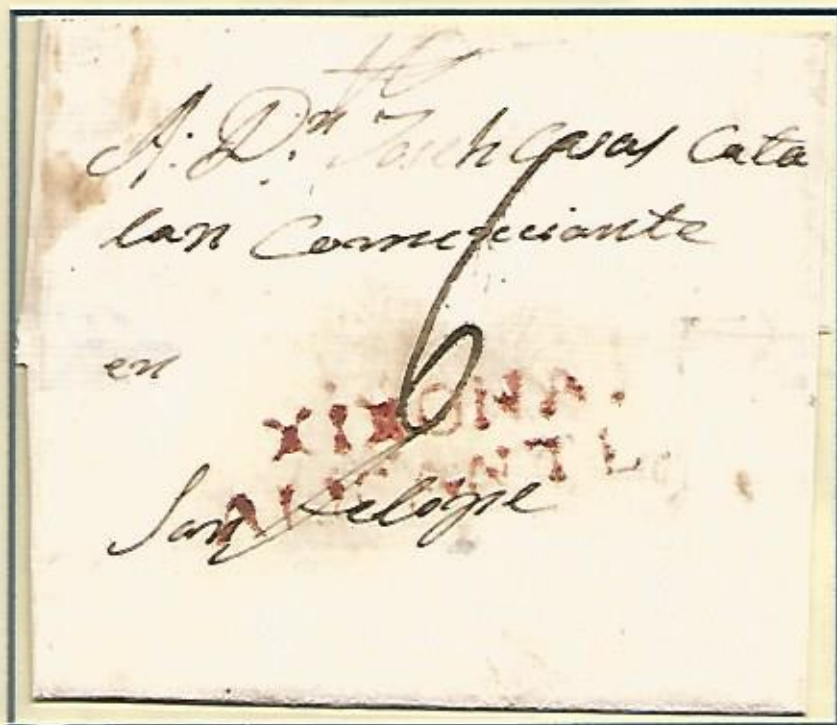 A. D.n Joseh Casas Cata
lan Comerciante
en
6
XIXONA.
ALICANTE
San Felipe